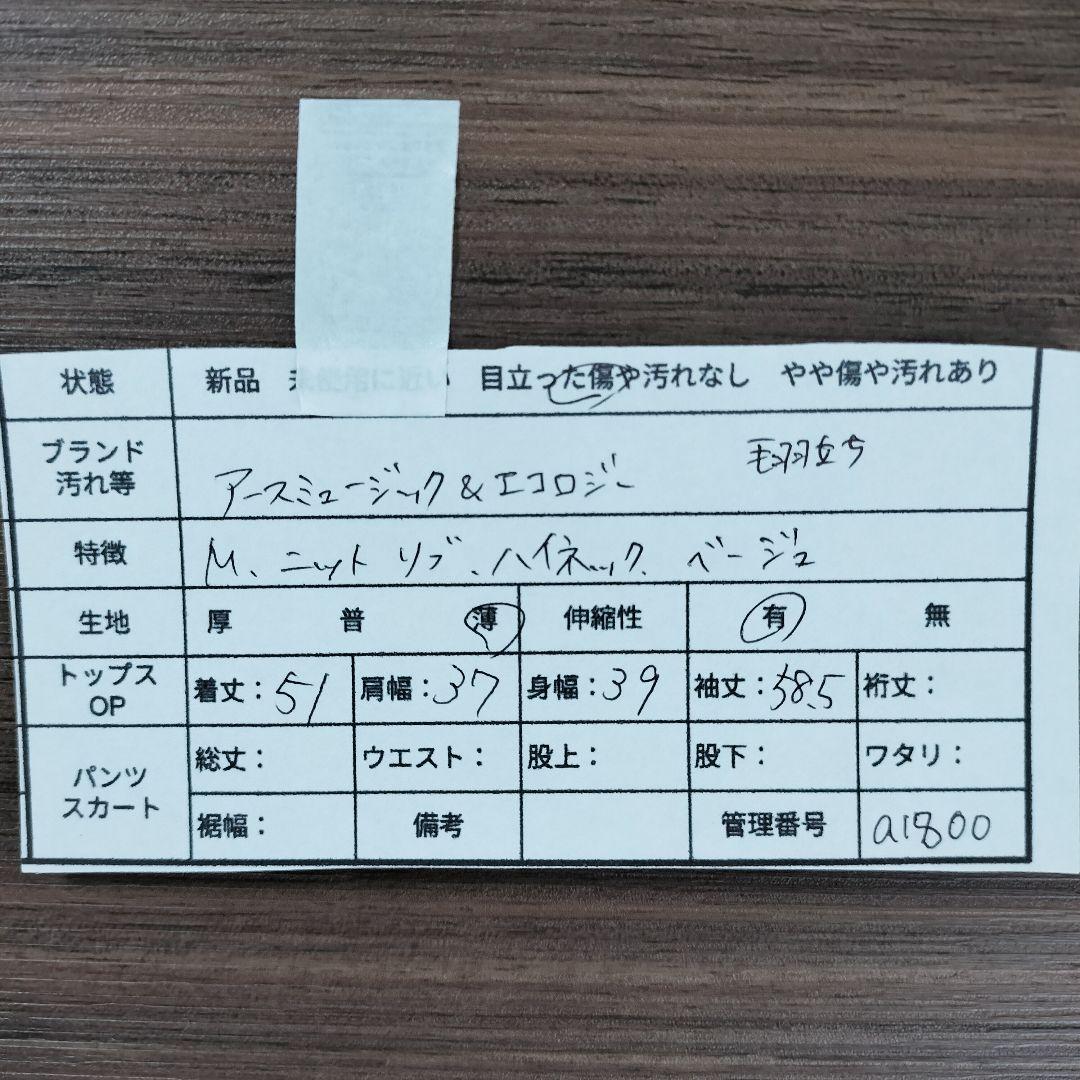 状態 新品 未使用に近い 目立った傷や汚れなし やや傷や汚れあり
ブランド
汚れ等 アースミュージック&エコロジー 毛羽立ち
特徴 M、ニット リブ、ハイネック、ベージュ
生地 厚 普 薄 伸縮性 有 無
トップス
OP 着丈：51 肩幅：37 身幅：39 袖丈：58.5 裄丈：
パンツ
スカート 総丈： ウエスト： 股上： 股下： ワタリ：
裾幅： 備考 管理番号 a1800